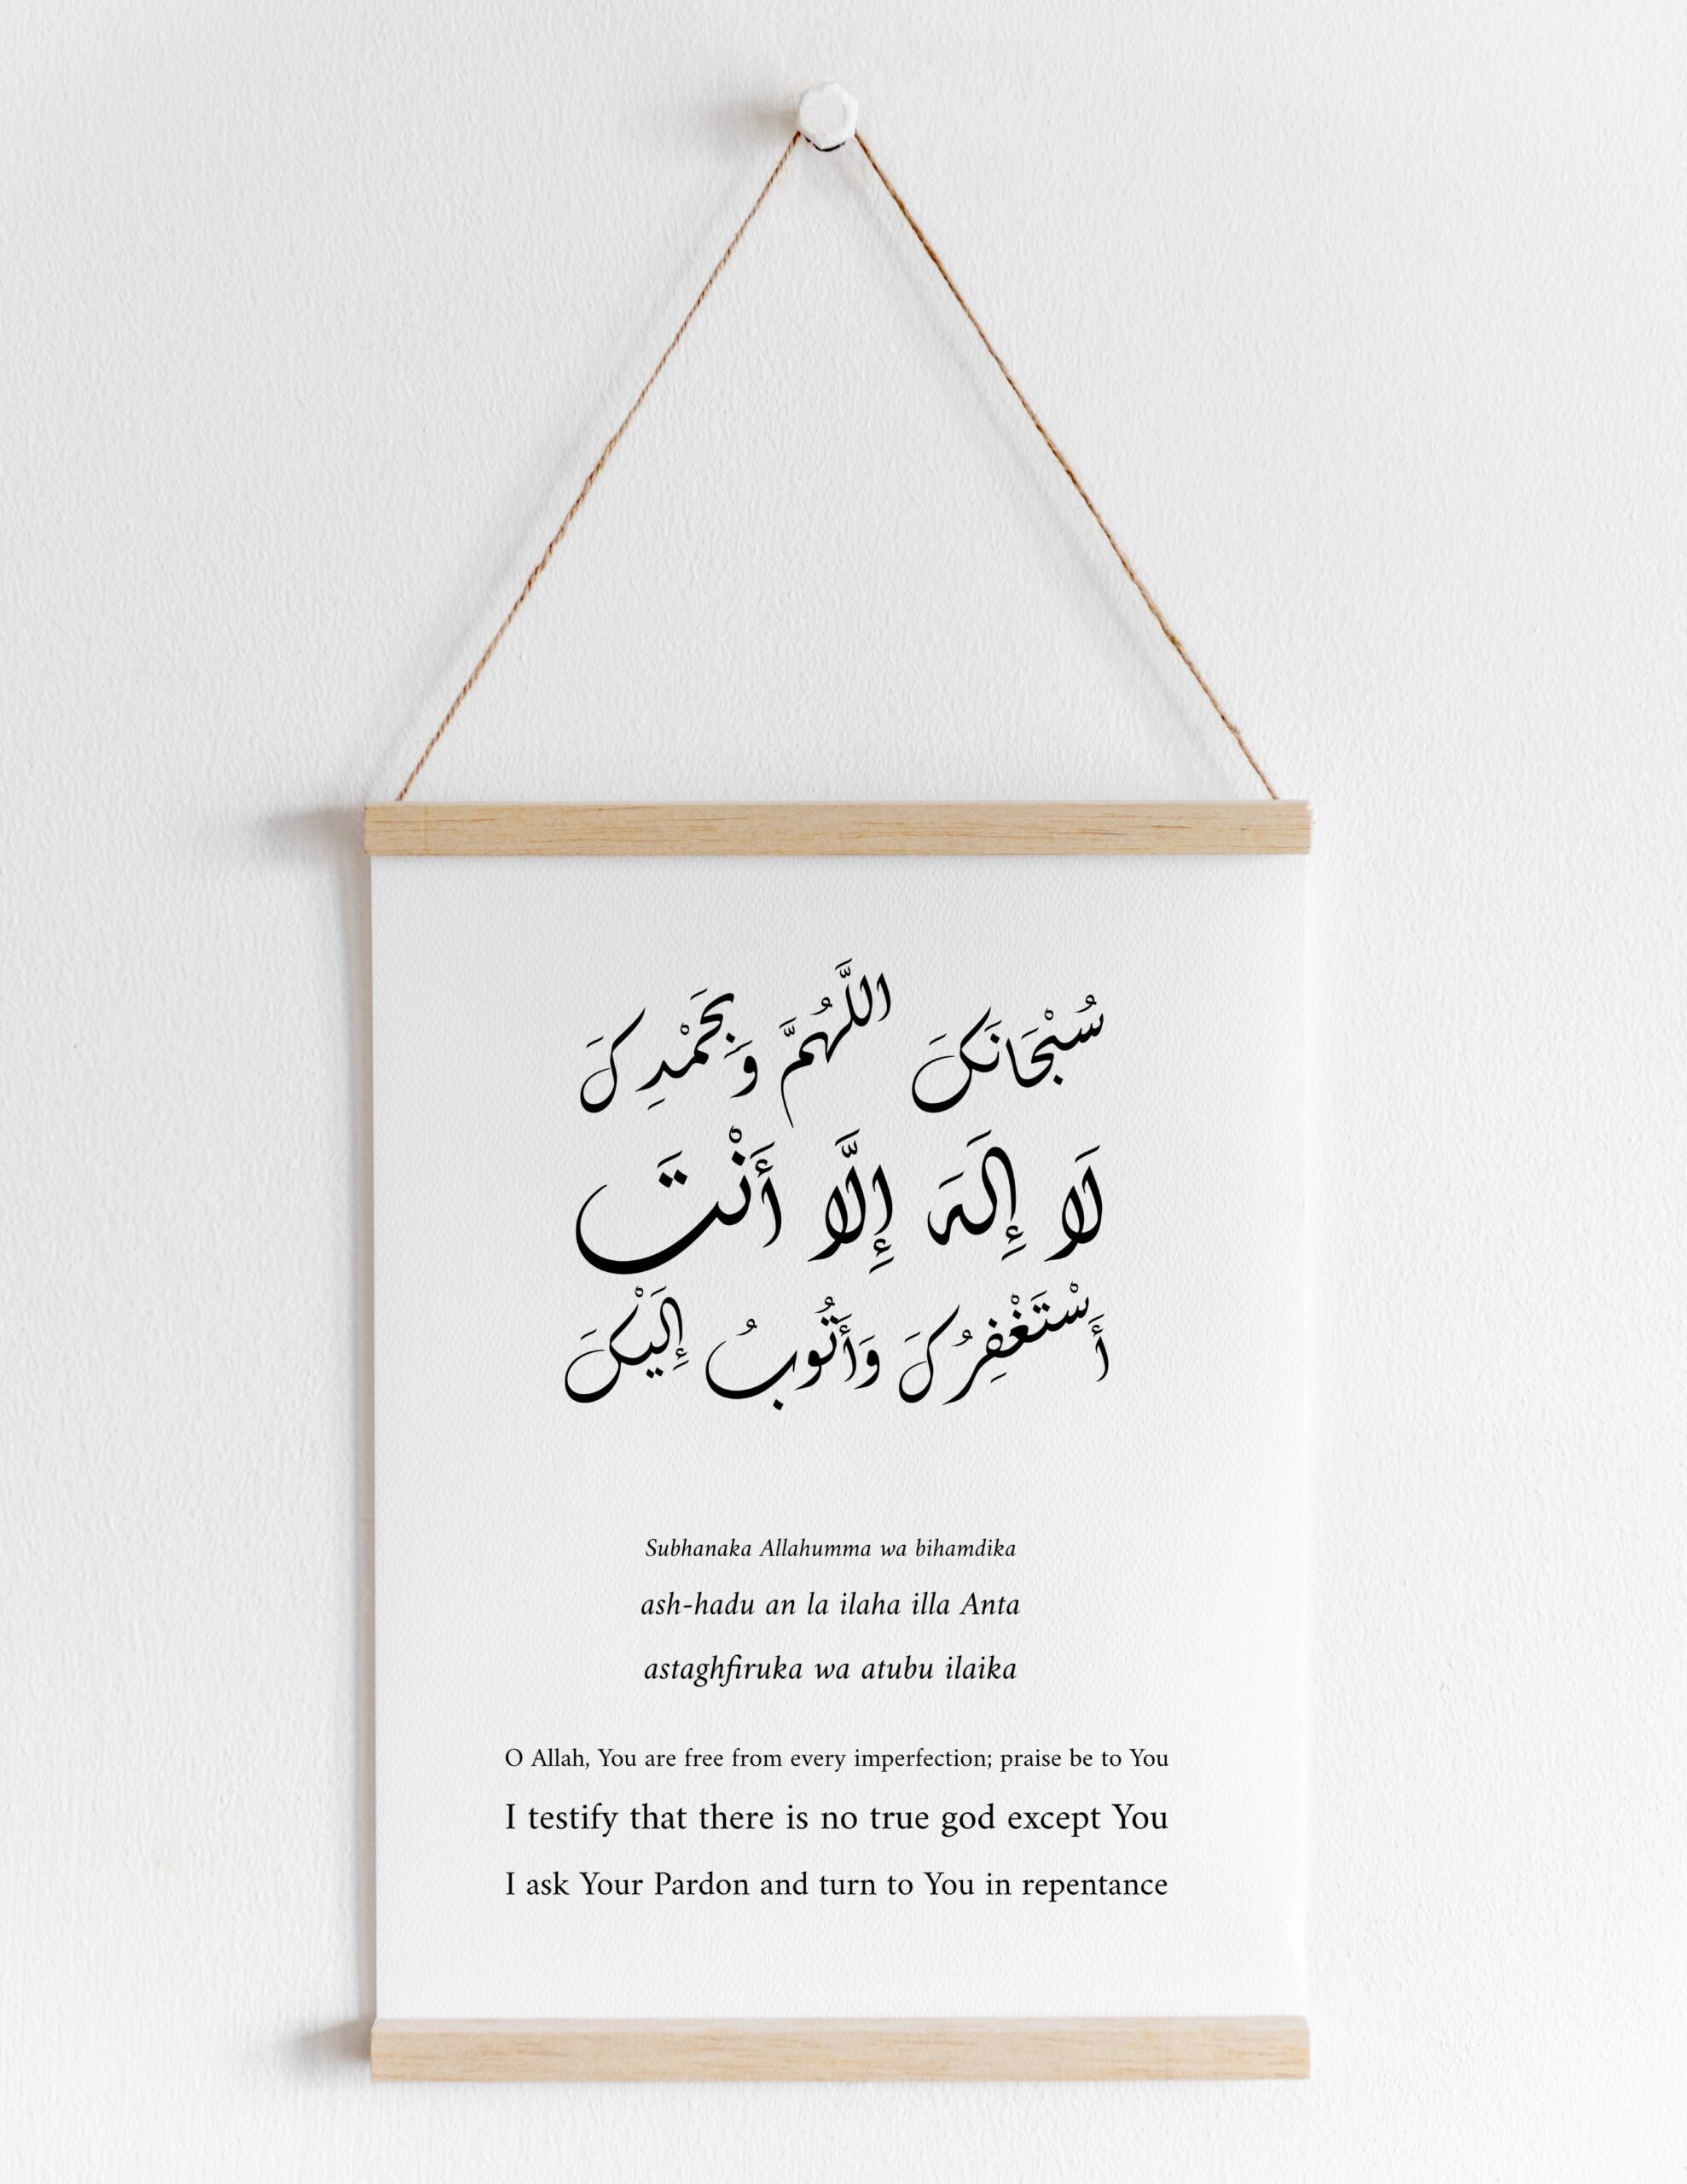 سُبْحَانَكَ اللَّهُمَّ وَبِحَمْدِكَ
لَا إِلَهَ إِلَّا أَنْتَ
أَسْتَغْفِرُكَ وَأَتُوبُ إِلَيْكَ
Subhanaka Allahumma wa bihamdika
ash-hadu an la ilaha illa Anta
astaghfiruka wa atubu ilaika
O Allah, You are free from every imperfection; praise be to You
I testify that there is no true god except You
I ask Your Pardon and turn to You in repentance